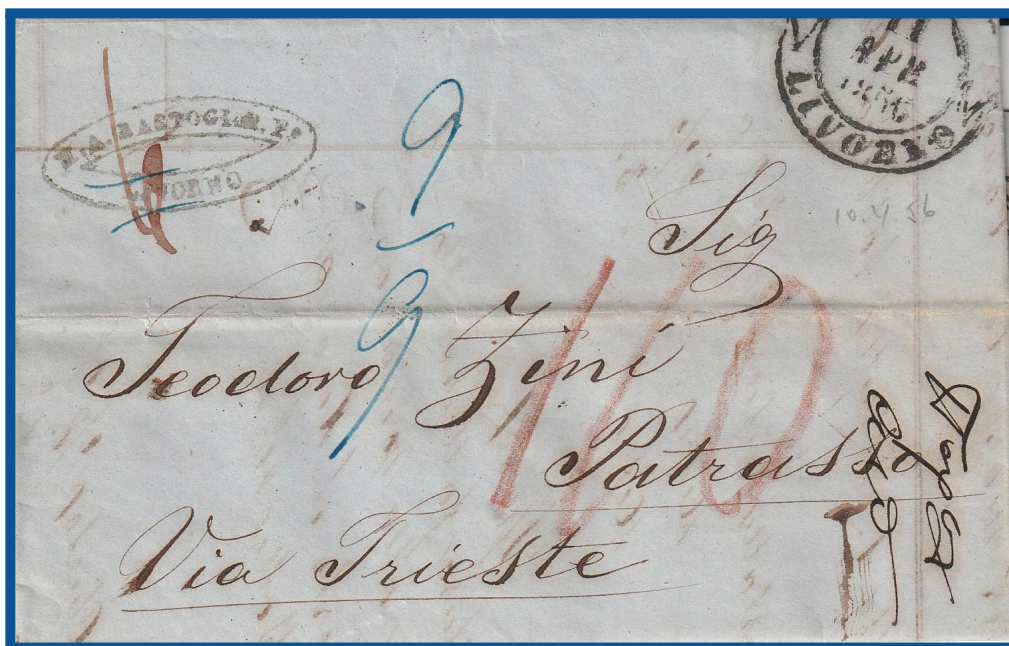 BASTOGI
LIVORNO
11
APR
1856
LIVORNO
9
9
10.4.56
Sig
Teodoro Zini
110
Patrasso
Via Trieste